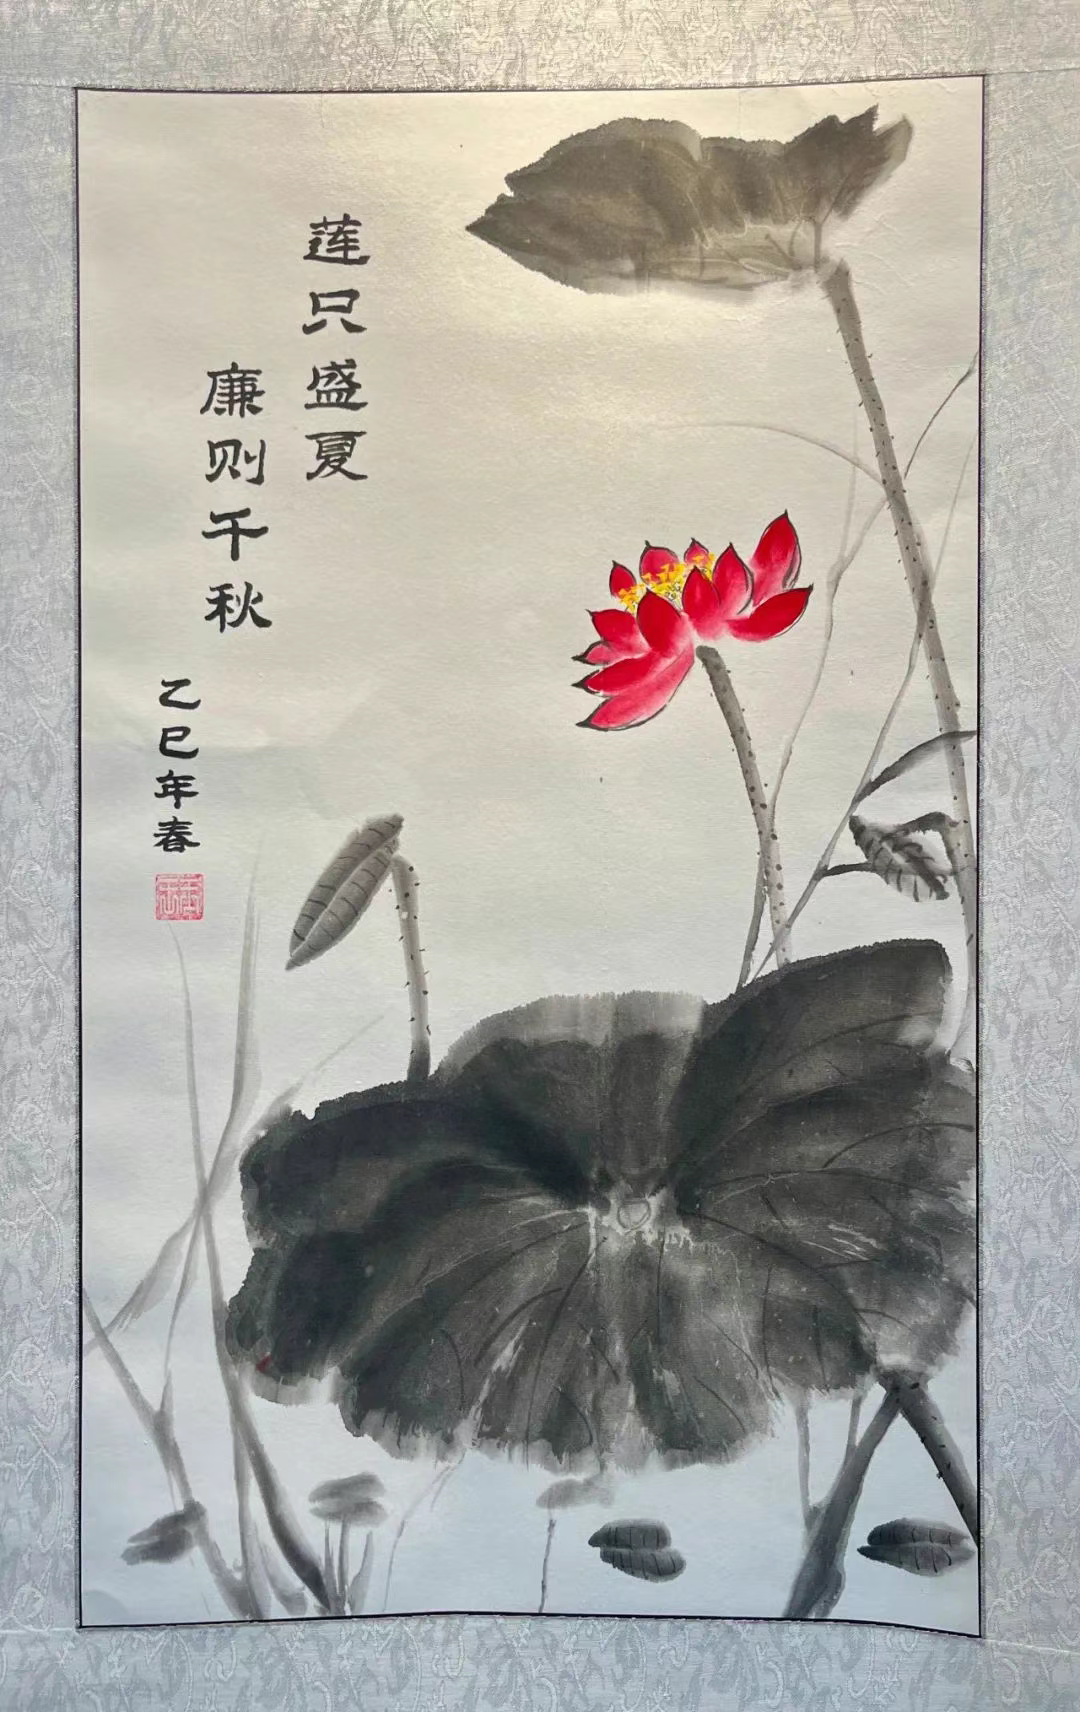 莲只盛夏
廉则千秋
乙巳年春